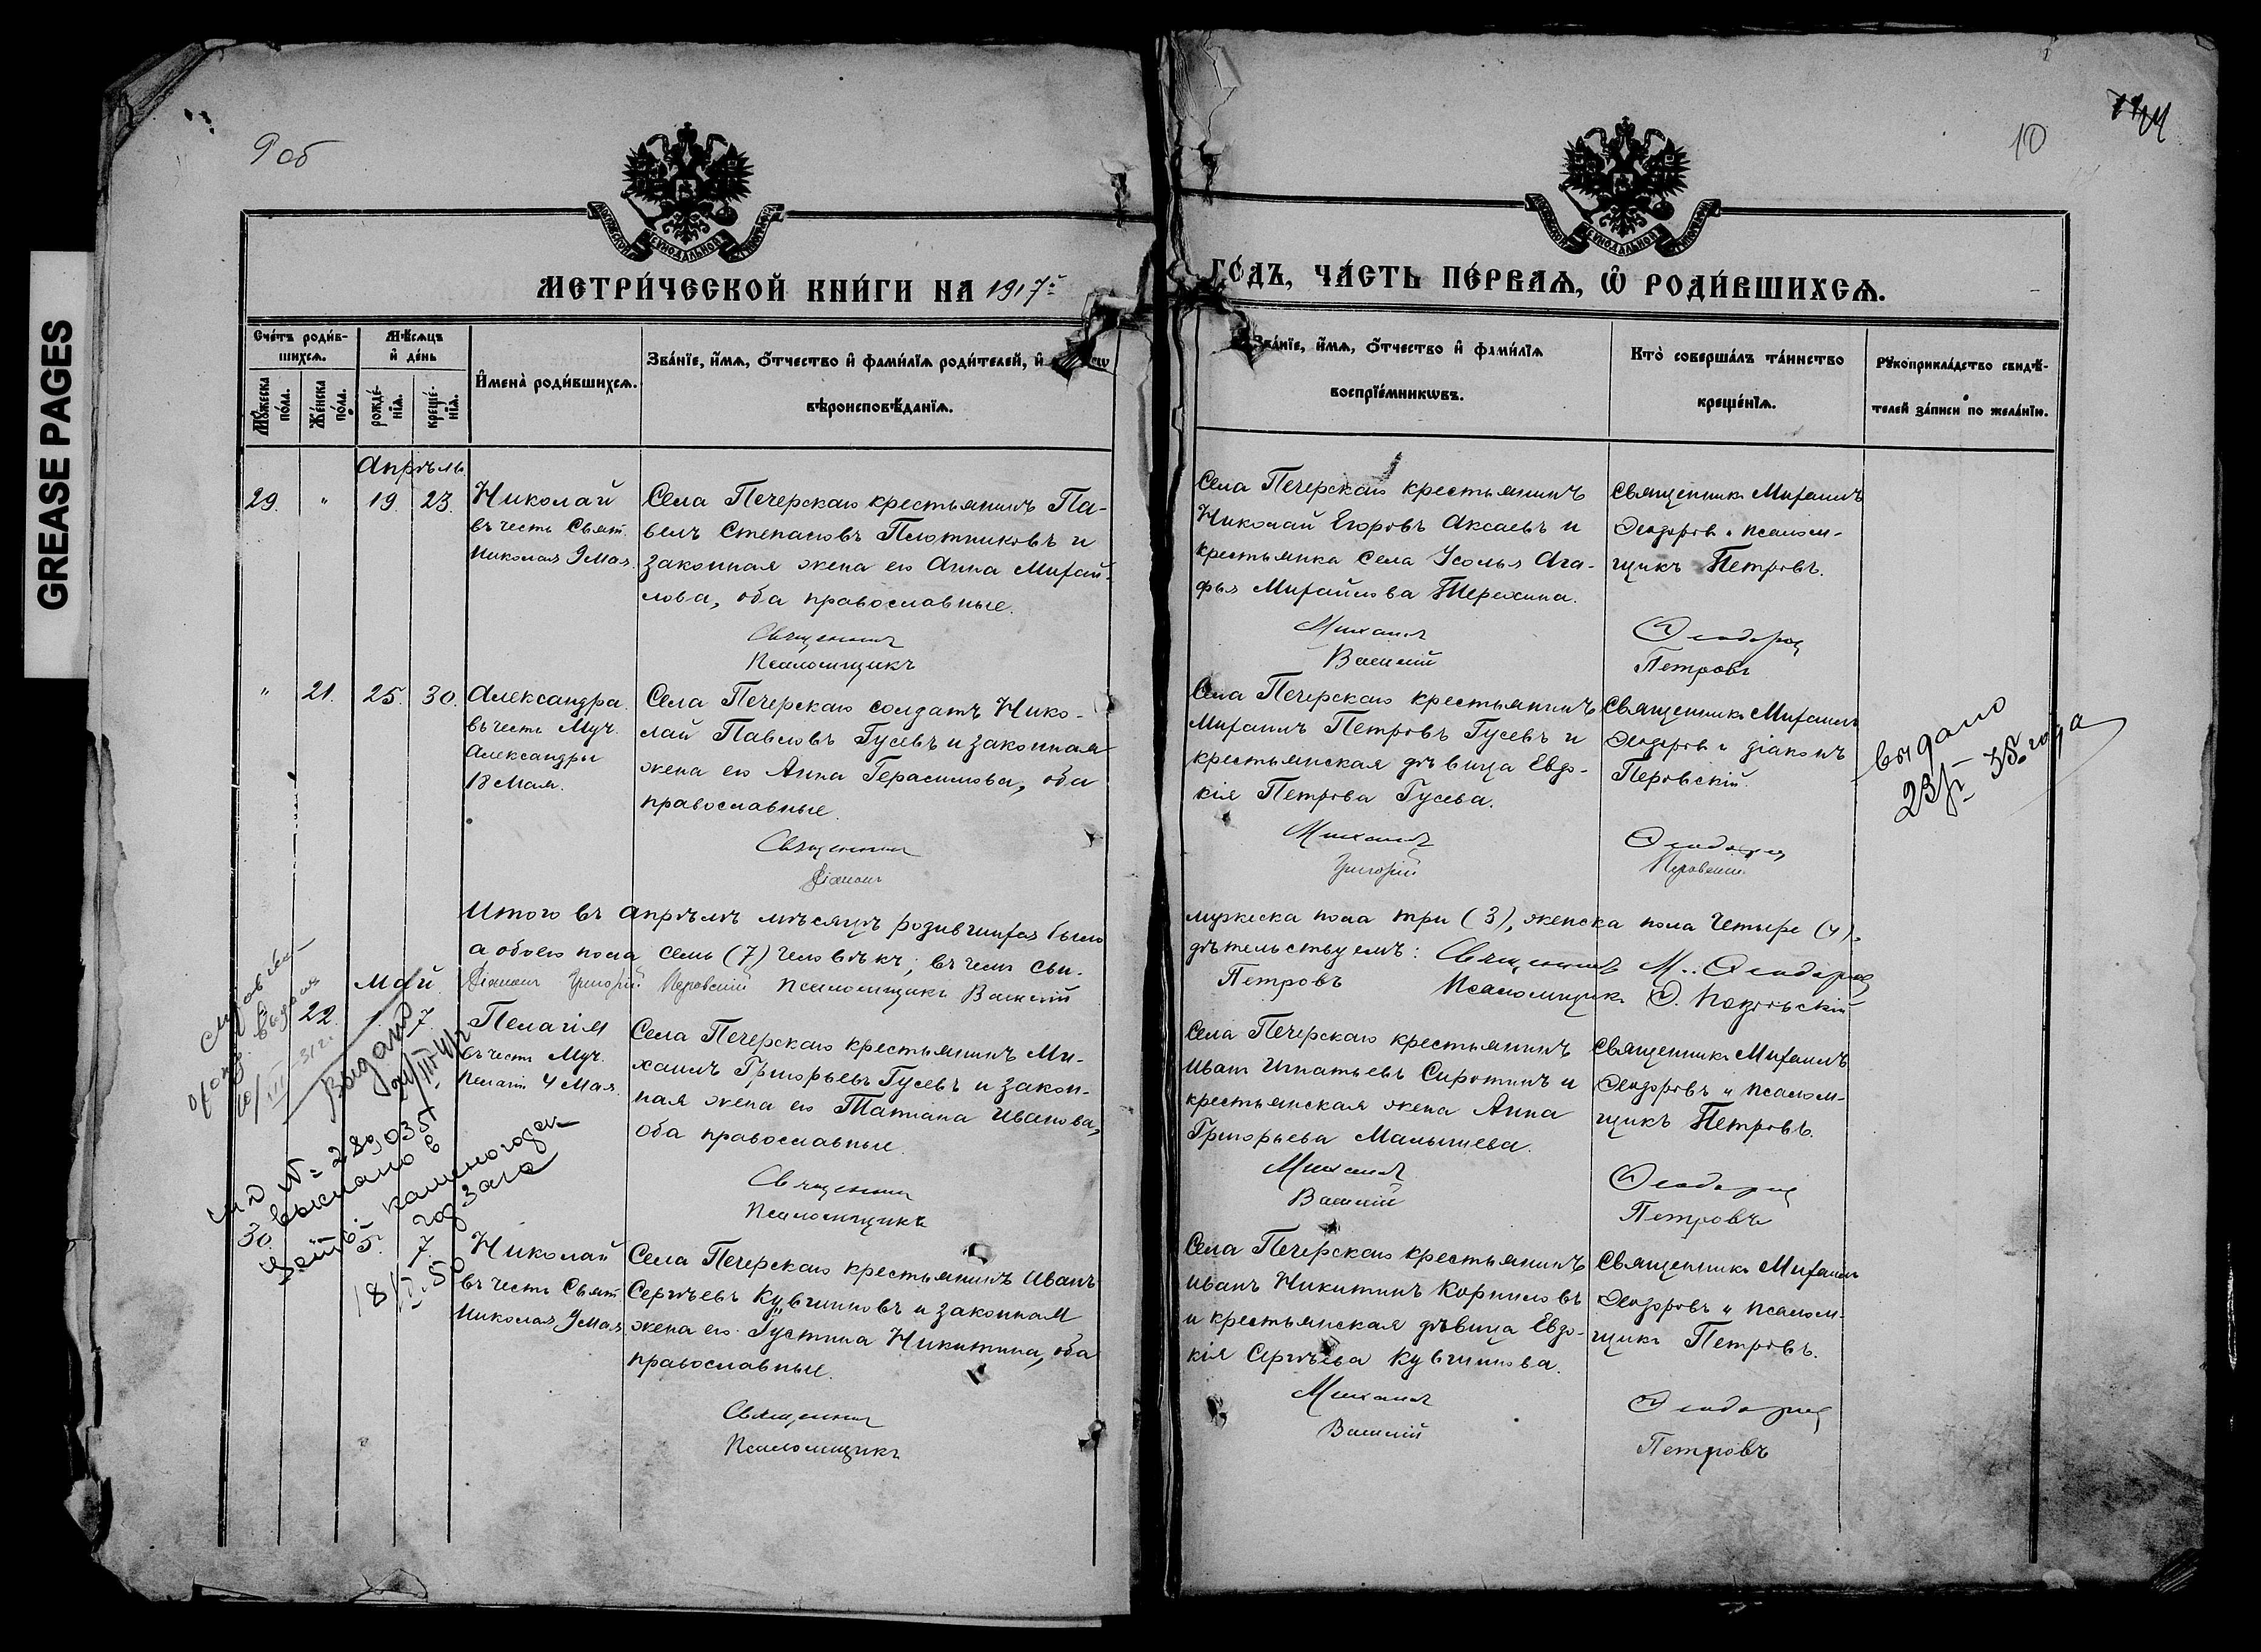 GREASE PAGES
9 об
10
МЕТРИ́ЧЕСКОЙ КНИ́ГИ НА 1917й
ГО́ДЪ, ЧА́СТЬ ПЕ́РВАѦ, Ѡ РОДИ́ВШИХСѦ.
Сче́тъ роди́в-
шихсѧ.
Мꙋжеска по́ла.
Же́нска по́ла.
Мѣ́сѧцъ и де́нь
рожде́-
нїѧ.
креще́-
нїѧ.
Имена̀ роди́вшихсѧ.
Зва́нїе, и́мѧ, ѻ́тчество и фами́лїѧ роди́телей, и
вѣроисповѣ́данїѧ.
Зва́нїе, и́мѧ, ѻ́тчество и фами́лїѧ
воспрїе́мникѡвъ.
Кто̀ соверша́лъ та́инство
креще́нїѧ.
Рꙋкоприкла́дство свидѣ́-
телей за́писи по жела́нїю.
Апрѣль
29. " 19. 23.
Николай
въ честь Свят.
Николая 9 Мая.
Села Печерскаго крестьянинъ Па-
велъ Степановъ Плотниковъ и
законная жена его Анна Михай-
лова, оба православные.
Священник
Псаломщикъ
Села Печерскаго крестьянинъ
Николай Егоровъ Аксаевъ и
крестьянка села Усолья Ага-
фья Михайлова Терехина.
Михаил
Василий
Священникъ Михаилъ
Ѳеодоровъ и псалом-
щикъ Петровъ.
Ѳеодоров
Петровъ
" 21. 25. 30.
Александра
въ честь Муч.
Александры
18 Мая.
Села Печерскаго солдатъ Нико-
лай Павловъ Гусевъ и законная
жена его Анна Герасимова, оба
православные.
Священник
Діаконъ
Села Печерскаго крестьянинъ
Михаилъ Петровъ Гусевъ и
крестьянская дѣвица Евдо-
кія Петрова Гусева.
Михаил
Григорій
Священникъ Михаилъ
Ѳеодоровъ и діаконъ
Перовскій.
Ѳеодоров
Перовскій
выдано
35 года
Итого въ апрѣлѣ мѣсяцѣ родившихся было
мужеска пола три (3), женска пола четыре (4),
а обоего пола семь (7) человѣкъ; въ чемъ сви-
дѣтельствуемъ: Священникъ М. Ѳеодоров
Діаконъ Григорій Перовскій Псаломщикъ Василій
Петровъ Псаломщикъ
Май
22. 1. 7.
Пелагія
въ честь Муч.
Пелагіи 4 Мая.
Села Печерскаго крестьянинъ Ми-
хаилъ Григорьевъ Гусевъ и закон-
ная жена его Татіана Иванова,
оба православные.
Священник
Псаломщикъ
Села Печерскаго крестьянинъ
Иванъ Игнатьевъ Сиротинъ и
крестьянская жена Анна
Григорьева Малышева.
Михаил
Василій
Священникъ Михаилъ
Ѳеодоровъ и псалом-
щикъ Петровъ.
Ѳеодоров
Петровъ
Выдано
№ 289035
выслано в
30. 5. 7.
Николай
въ честь Свят.
Николая 9 Мая.
Села Печерскаго крестьянинъ Иванъ
Сергѣевъ Кувшиновъ и законная
жена его Густина Никитина, оба
православные.
Священник
Псаломщикъ
Села Печерскаго крестьянинъ
Иванъ Никитинъ Корниловъ
и крестьянская дѣвица Евдо-
кія Сергѣева Кувшинова.
Михаил
Василій
Священникъ Михаилъ
Ѳеодоровъ и псалом-
щикъ Петровъ.
Ѳеодоров
Петровъ